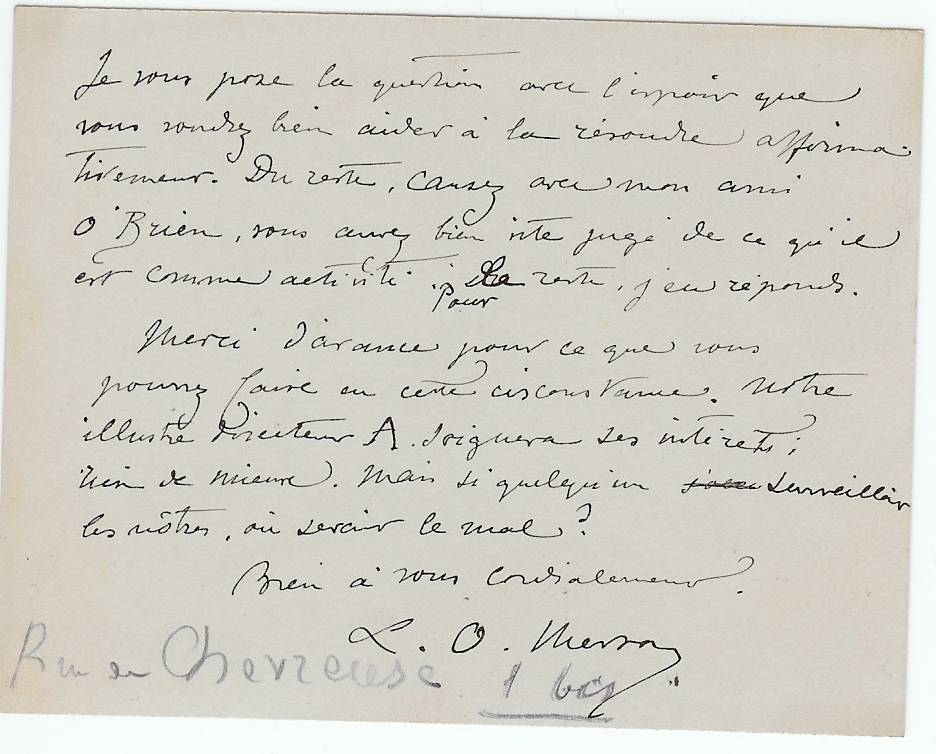 Je vous pose la question avec l'espoir que
vous voudrez bien aider à la résoudre affirma-
tivement. Du reste, causez avec mon ami
O'Brien, vous aurez bien vite jugé de ce qu'il
est comme activité ; Pour le reste, j'en réponds.
Merci d'avance pour ce que vous
pourrez faire en cette circonstance. Notre
illustre Directeur A. soignera ses intérêts ;
rien de mieux. Mais si quelqu'un surveillait
les nôtres, où serait le mal ?
Bien à vous cordialement.
L. O. Merson
Rue de Chevreuse 1 bis